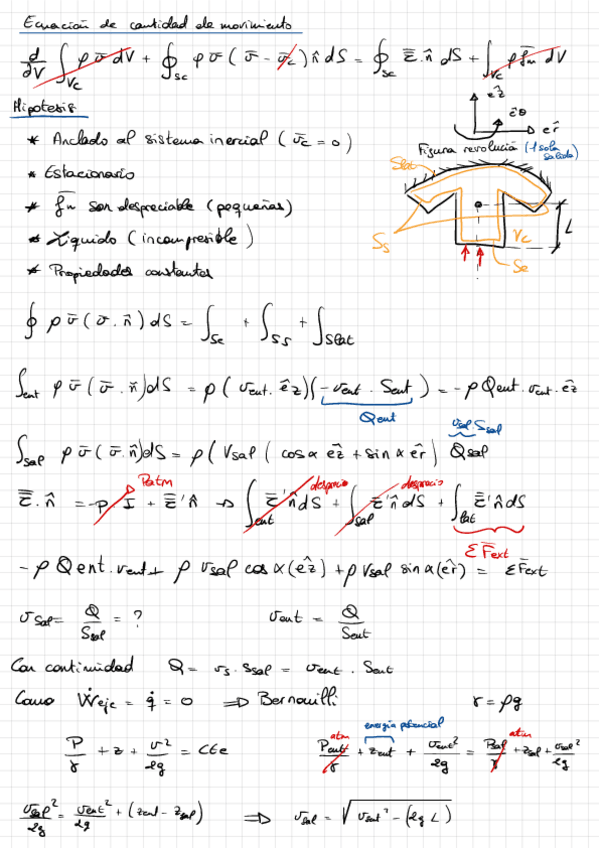 Ecuación de cantidad de movimiento
d/dV ∫_Vc ρ v̄ dV + ∮_Sc ρ v̄ ( v̄ - v̄c ) n̂ dS = ∮_Sc τ̿ . n̂ dS + ∫_Vc ρ f̄m dV
Hipotesis
* Anclado al sistema inercial ( v̄c = 0 )
* Estacionario
* f̄m son despreciable (pequeñas)
* Liquido ( incompresible )
* Propiedades constantes
êz
êθ
êr
Figura revolució (1 sola salida)
Slat
Ss
Vc
Se
L
∮ ρ v̄ ( v̄ . n̂ ) dS = ∫_Se + ∫_Ss + ∫_Slat
∫_ent ρ v̄ ( v̄ . n̂ ) dS = ρ ( vent . êz ) ( - vent . Sent ) = - ρ Qent . vent . êz
Qent
vsal . Ssal
∫_sal ρ v̄ ( v̄ . n̂ ) dS = ρ ( Vsal ( cos α êz + sin α êr ) Qsal
τ̿ . n̂ = - P . I̿ + τ̿' n̂ → ∫_ent τ̿' n̂ dS + ∫_sal τ̿' n̂ dS + ∫_lat τ̿' n̂ dS
Patm
desprecio
desprecio
Σ F̄ext
- ρ Qent . vent + ρ vsal cos α (êz) + ρ Vsal sin α (êr) = Σ F̄ext
vsal = Q/Ssal = ? vent = Q/Sent
Con continuidad Q = vs . Ssal = vent . Sent
Como Ẇeje = q̇ = 0 ⇒ Bernouilli γ = ρg
atm
energia potencial
atm
P/γ + z + v²/2g = Cte Pent/γ + zent + vent²/2g = Psal/γ + zsal + vsal²/2g
vsal²/2g = vent²/2g + (zent - zsal) ⇒ vsal = √(vent² - (2g L))